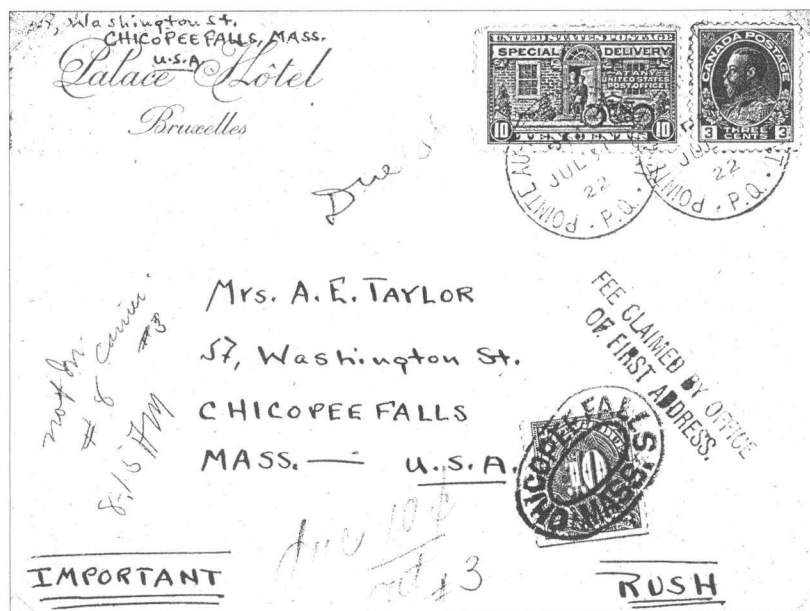 57, Washington St.
CHICOPEE FALLS, MASS.
U.S.A
Palace Hôtel
Bruxelles
UNITED STATES POSTAGE
SPECIAL DELIVERY
AT ANY
UNITED STATES
POST OFFICE
10 TEN CENTS 10
CANADA POSTAGE
3 THREE CENTS 3
POINTE AU
JUL 31
22
P.Q.
POINTE
JUL
22
P.Q.
Due
Mrs. A. E. TAYLOR
57, Washington St.
CHICOPEE FALLS
MASS. — U.S.A.
FEE CLAIMED BY OFFICE
OF FIRST ADDRESS.
not in.
# 8 carrier.
#3
8:15 AM
CHICOPEE FALLS
MASS.
10
due 10¢
#3
IMPORTANT
RUSH